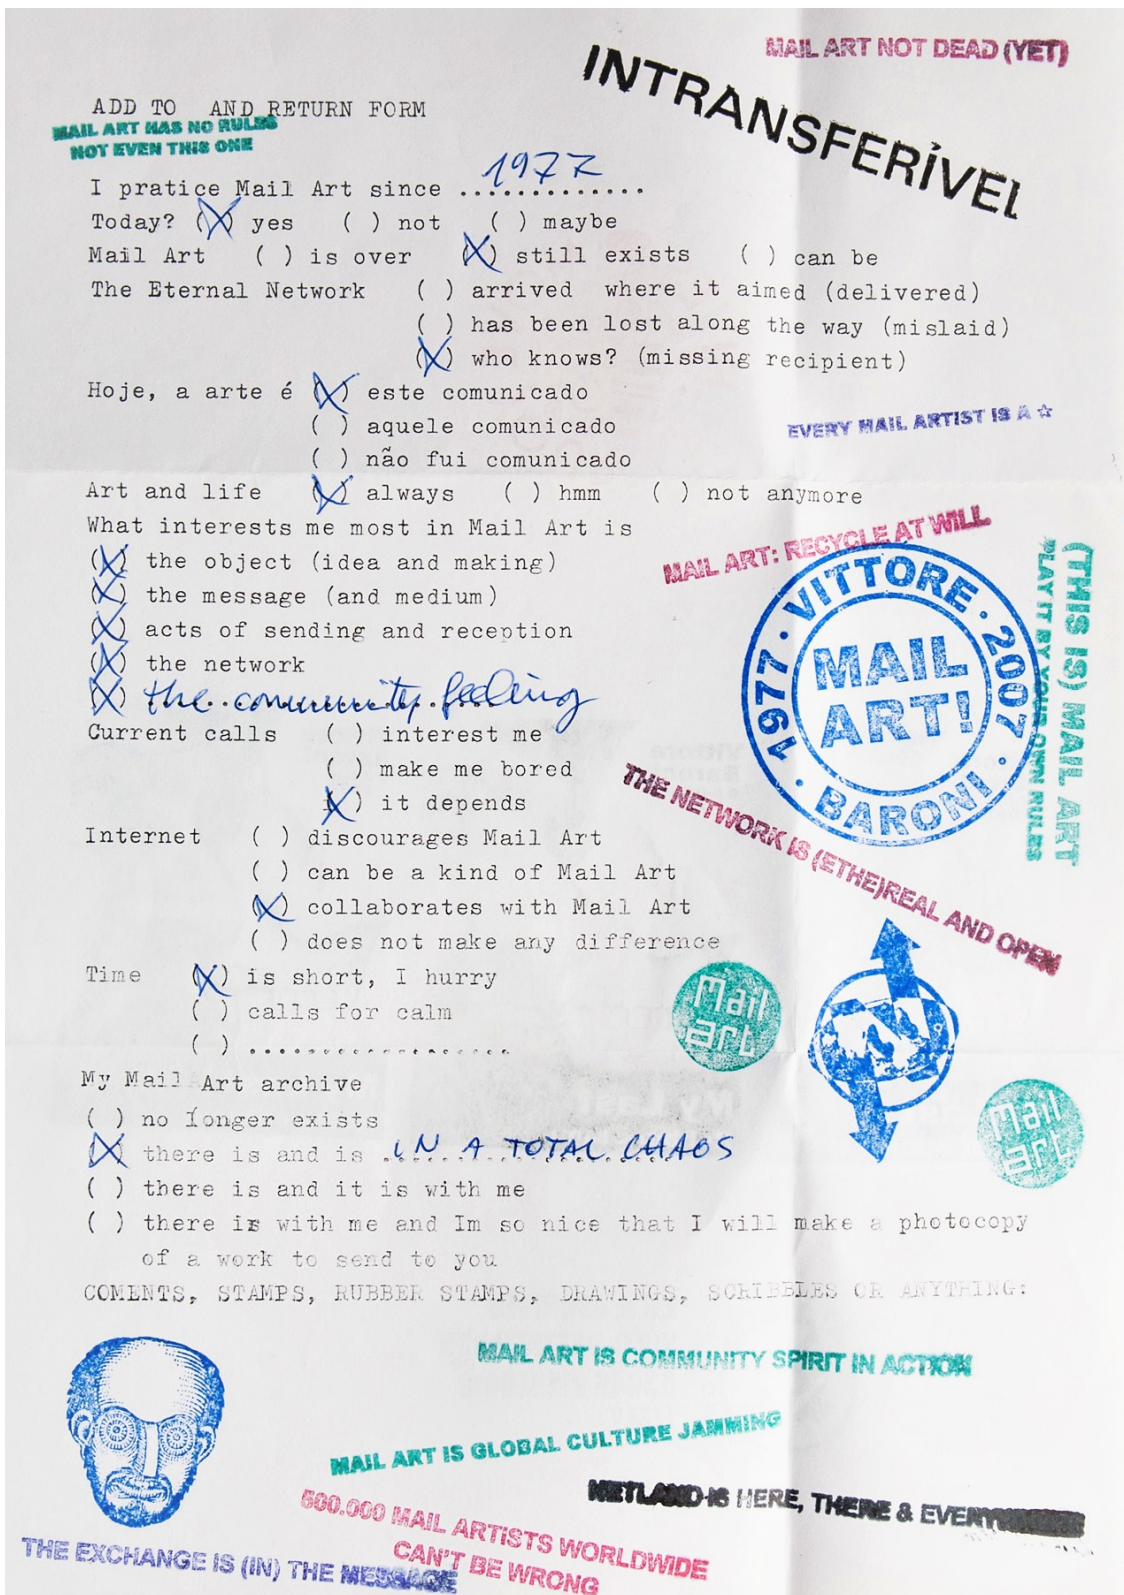 MAIL ART NOT DEAD (YET)
INTRANSFERÍVEL
ADD TO AND RETURN FORM
MAIL ART HAS NO RULES
NOT EVEN THIS ONE
I pratice Mail Art since 1977
Today? (X) yes ( ) not ( ) maybe
Mail Art ( ) is over (X) still exists ( ) can be
The Eternal Network ( ) arrived where it aimed (delivered)
( ) has been lost along the way (mislaid)
(X) who knows? (missing recipient)
Hoje, a arte é (X) este comunicado
( ) aquele comunicado
EVERY MAIL ARTIST IS A ☆
( ) não fui comunicado
Art and life (X) always ( ) hmm ( ) not anymore
What interests me most in Mail Art is
MAIL ART: RECYCLE AT WILL
(X) the object (idea and making)
(X) the message (and medium)
(X) acts of sending and reception
(X) the network
(X) the community feeling
1977 · VITTORE · 2007 · BARONI ·
MAIL
ART!
(THIS IS) MAIL ART
PLAY IT BY YOUR OWN RULES
Current calls ( ) interest me
( ) make me bored
(X) it depends
THE NETWORK IS (ETHE)REAL AND OPEN
Internet ( ) discourages Mail Art
( ) can be a kind of Mail Art
(X) collaborates with Mail Art
( ) does not make any difference
Time (X) is short, I hurry
( ) calls for calm
( ) ....................
Mail
art
My Mail Art archive
( ) no longer exists
(X) there is and is IN A TOTAL CHAOS
Mail
art
( ) there is and it is with me
( ) there is with me and Im so nice that I will make a photocopy
of a work to send to you
COMENTS, STAMPS, RUBBER STAMPS, DRAWINGS, SCRIBBLES OR ANYTHING:
MAIL ART IS COMMUNITY SPIRIT IN ACTION
MAIL ART IS GLOBAL CULTURE JAMMING
NETLAND IS HERE, THERE &
500.000 MAIL ARTISTS WORLDWIDE
CAN'T BE WRONG
THE EXCHANGE IS (IN) THE MESSAGE